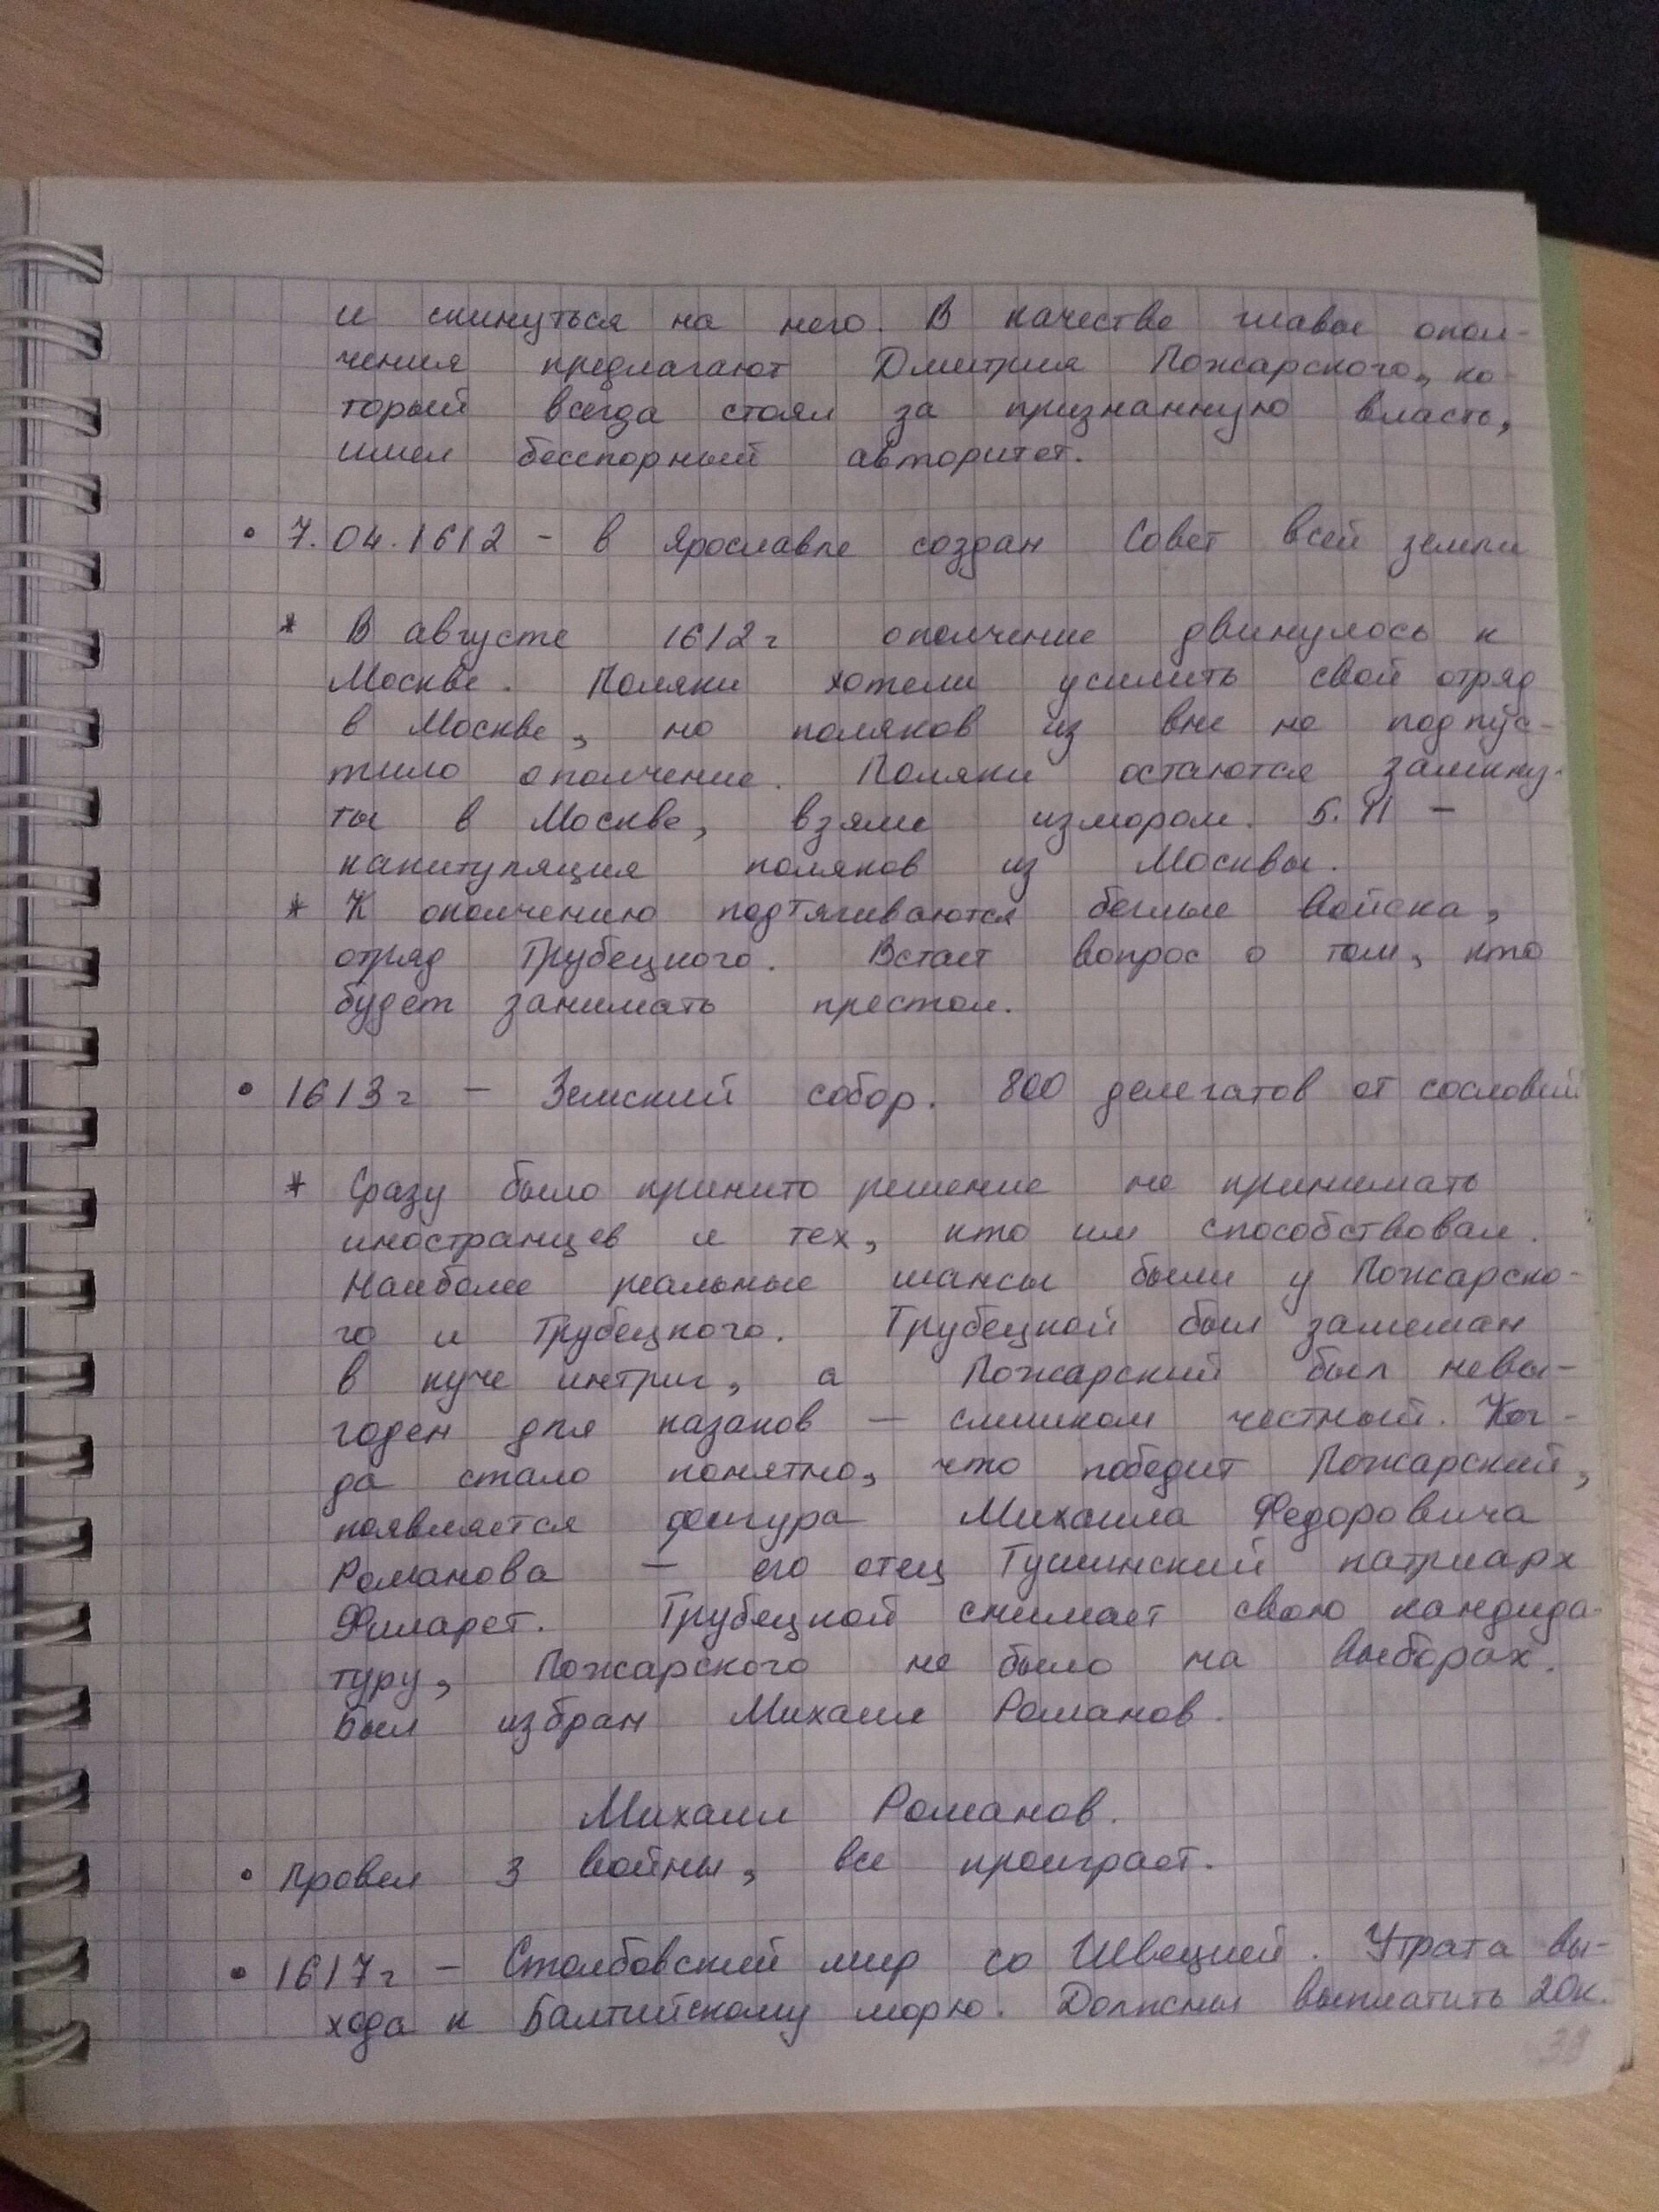 и скинуться на него. В качестве главы опол-
чения предлагают Дмитрия Пожарского, ко-
торый всегда стоял за признанную власть,
имел бесспорный авторитет.
• 7.04.1612 - в Ярославле создан Совет всей земли
* В августе 1612г ополчение двинулось к
Москве. Поляки хотели усилить свой отряд
в Москве, но поляков из вне не подпус-
тило ополчение. Поляки остаются замкну-
ты в Москве, взяли измором. 5.11 -
капитуляция поляков из Москвы.
* К ополчению подтягиваются беглые войска,
отряд Трубецкого. Встает вопрос о том, кто
будет занимать престол.
• 1613г - Земский собор. 800 делегатов от сословий
* Сразу было принято решение не принимать
иностранцев и тех, кто им способствовал.
Наиболее реальные шансы были у Пожарско-
го и Трубецкого. Трубецкой был замешан
в куче интриг, а Пожарский был невы-
годен для казаков - слишком честный. Ког-
да стало понятно, что победит Пожарский,
появляется фигура Михаила Федоровича
Романова - его отец Тушинский патриарх
Филарет. Трубецкой снимает свою кандида-
туру, Пожарского не было на выборах.
Был избран Михаил Романов.
Михаил Романов.
• Провел 3 войны, все проиграет.
• 1617г - Столбовский мир со Швецией. Утрата вы-
хода к Балтийскому морю. Должны выплатить 20к.
39